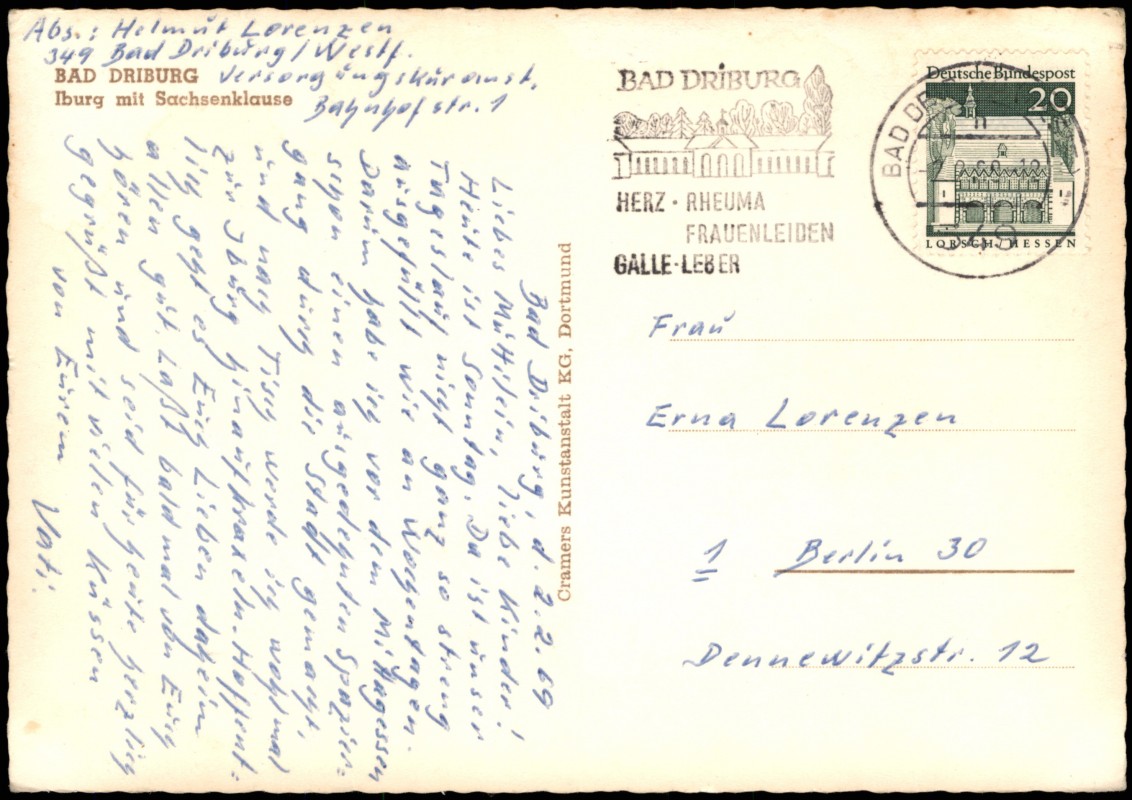 Abs.: Helmut Lorenzen
349 Bad Driburg/Westf.
Versorgungskuranst,
Bahnhofstr. 1
BAD DRIBURG
Iburg mit Sachsenklause
Bad Driburg, d. 2.2.69
Liebes Muttilein, liebe Kinder!
Heute ist Sonntag. Da ist unser
Tageslauf nicht ganz so streng
ausgefüllt wie an Wochentagen.
Darum habe ich vor dem Mittagessen
schon einen ausgedehnten Spazier-
gang durch die Stadt gemacht,
und nach Tisch werde ich wohl mal
zur Iburg hinaufkraxeln. Hoffent-
lich geht es Euch Lieben daheim
allen gut. Laßt bald mal von Euch
hören und seid für heute herzlich
gegrüßt mit vielen Küssen
von Eurem
Vati.
Cramers Kunstanstalt KG, Dortmund
BAD DRIBURG
HERZ · RHEUMA
FRAUENLEIDEN
GALLE · LEBER
BAD
349
Deutsche Bundespost
20
LORSCH/HESSEN
Frau
Erna Lorenzen
1 Berlin 30
Dennewitzstr. 12